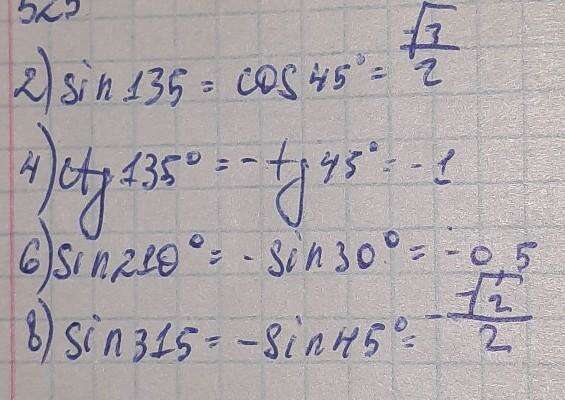 525
2) sin 135 = cos 45° = √3/2
4) ctg 135° = - tg 45° = - 1
6) sin 210° = - sin 30° = - 0,5
8) sin 315 = - sin 45° = - √2/2